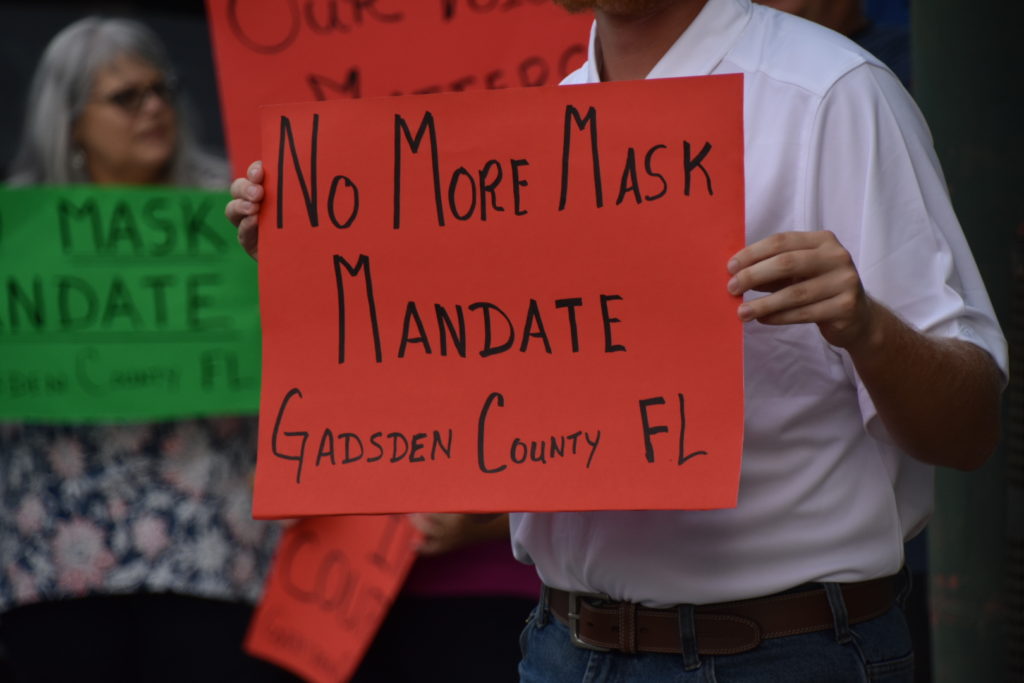 Our Voice
Matters
No More Mask
Mandate
Gadsden County FL
Mask
andate
den County FL